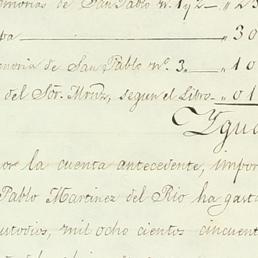 morias de San Pablo nº. 1 y 2 — 23
pa — „ 30
moria de San Pablo nº. 3. — „ 10
del Sõr. Mruz, segun el Libro „ 01
Ygua
por la cuenta antecedente, impor
Pablo Martinez del Rio ha gasta
custodios, mil ocho cientos cincuent